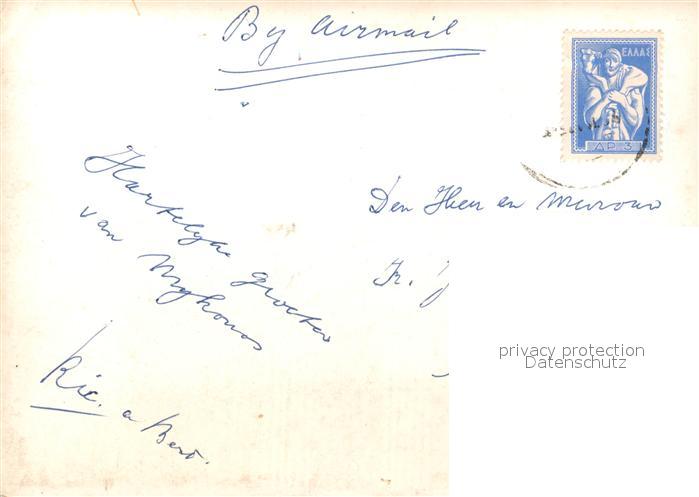 By airmail
ΕΛΛΑΣ
ΔΡ 3
Hartelijke groeten
van Mykonos
Rie. e Bert.
Den Heer en Mevrouw
Fr. J
privacy protection
Datenschutz